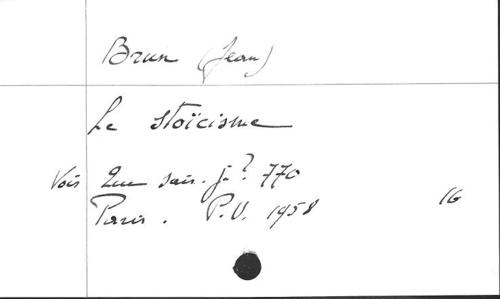 Brun (Jean)
Le stoïcisme
Voir Que sais-je? 770
Paris. P.U. 1958 16